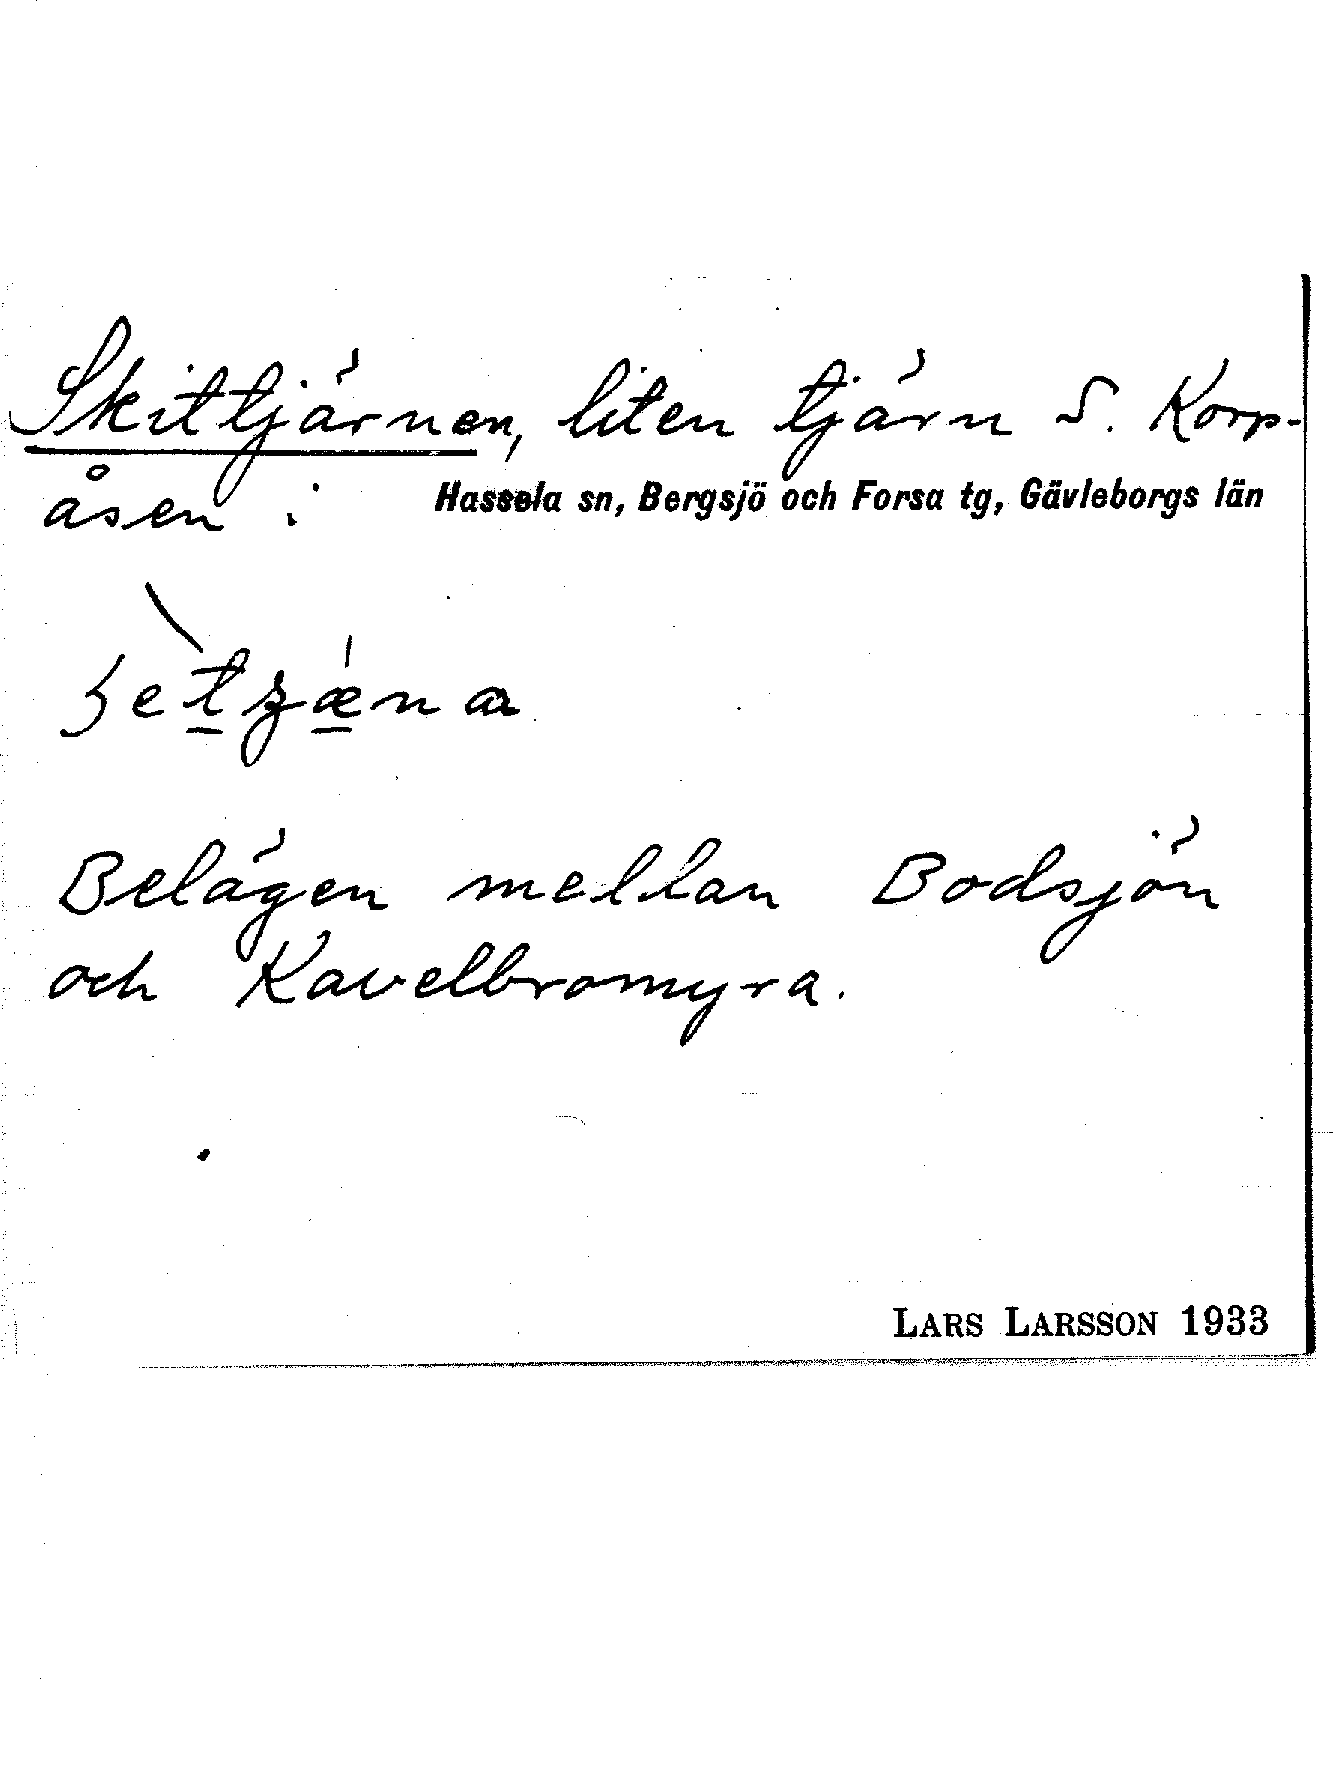 Skittjärnen, liten tjärn S. Korp-
åsen i Hassela sn, Bergsjö och Forsa tg, Gävleborgs län
Belägen mellan Bodsjön
och Kavelbromyra.
LARS LARSSON 1933